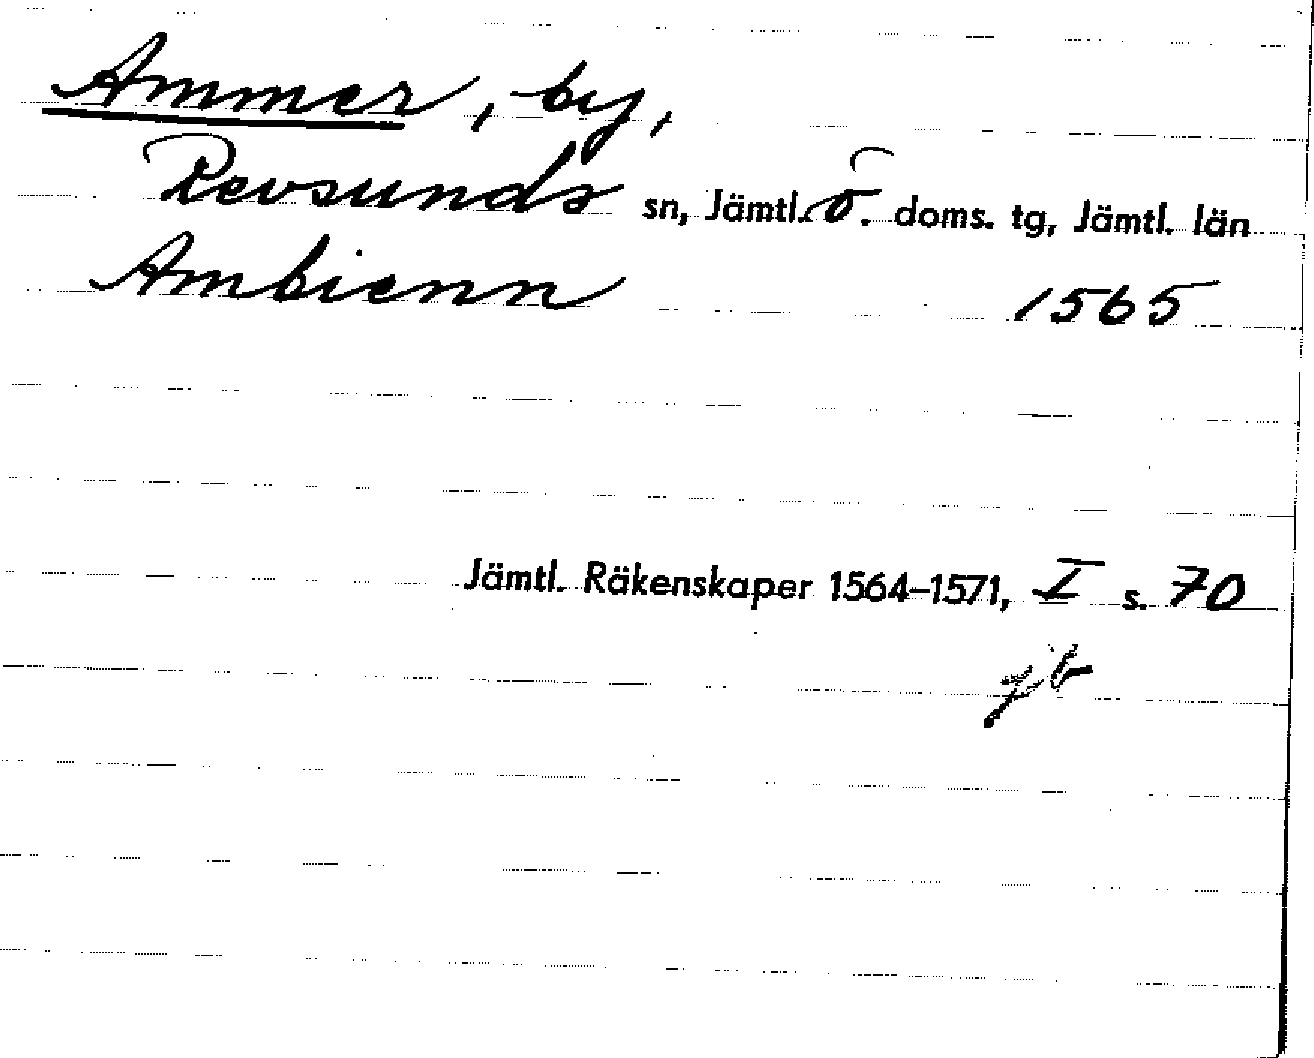 Ammer, by,
Revsunds sn, Jämtl. ö. doms. tg, Jämtl. län
Ambienn 1565
Jämtl. Räkenskaper 1564–1571, I s. 70